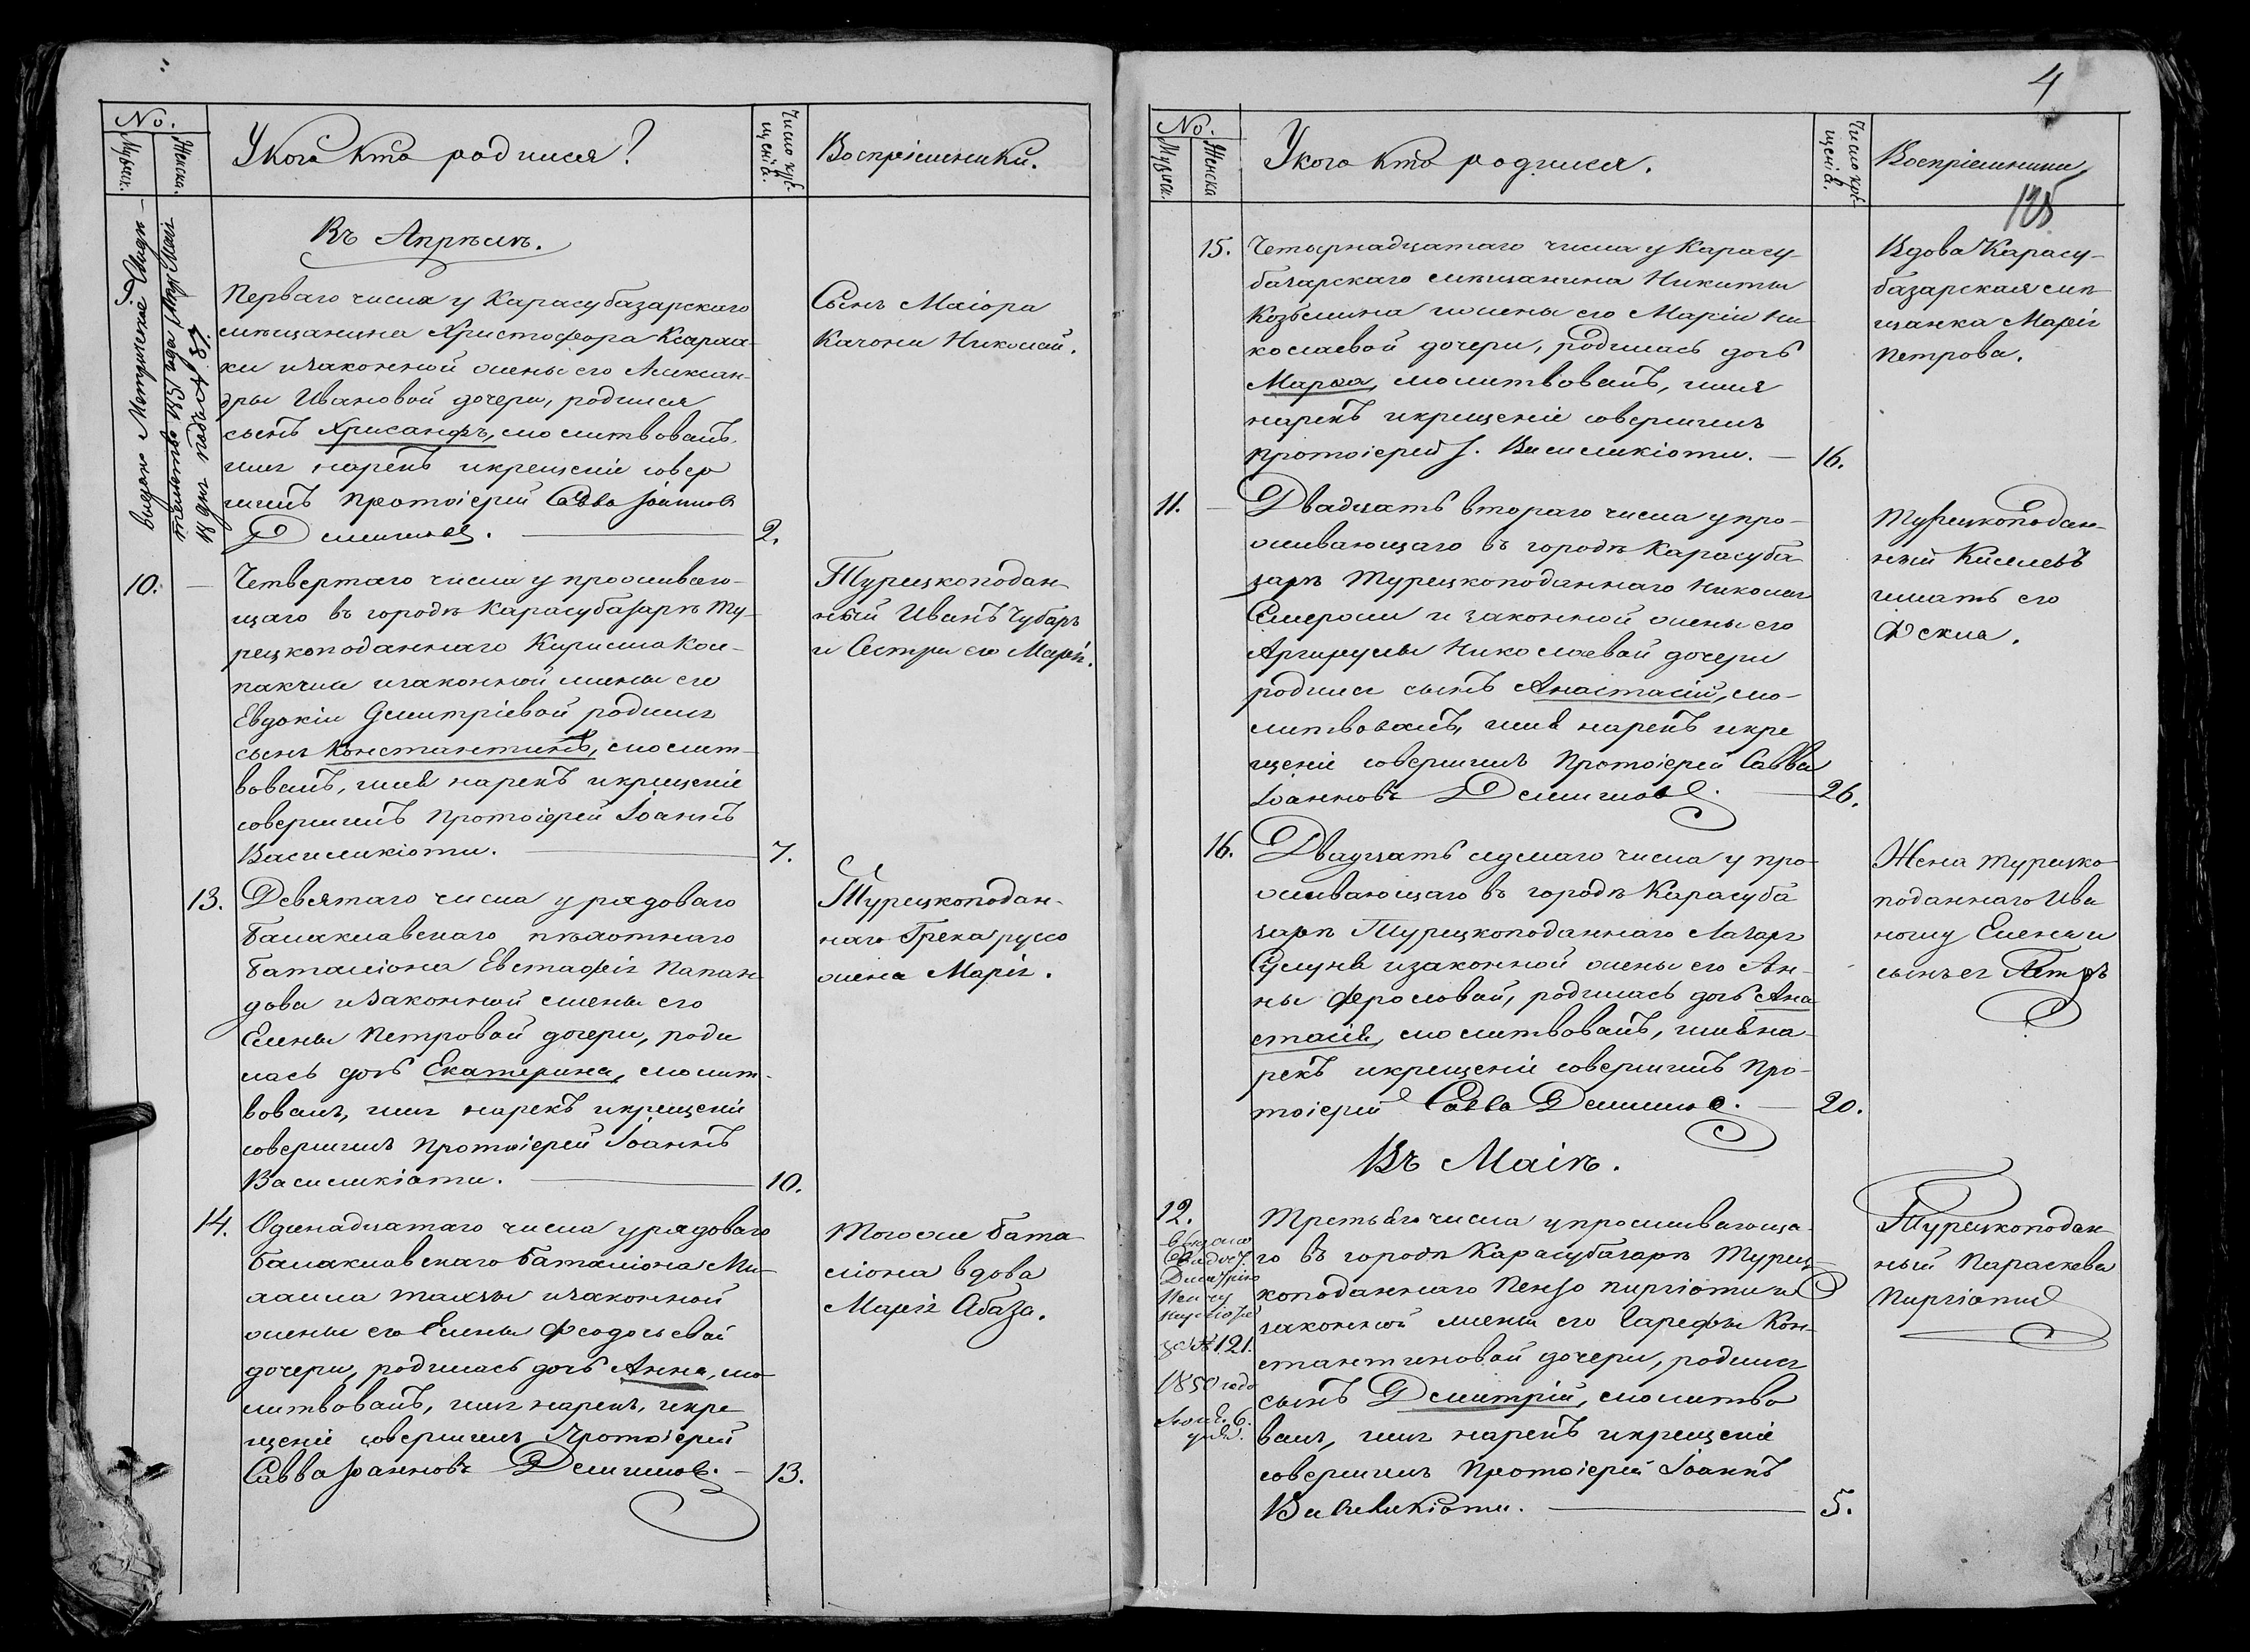 No.
Мужеск.
Женска.
У кого кто родился?
Число кре-
щенія.
Воспріемники.
Въ Апрѣлѣ.
9.
выдано Метрическое Свидѣ-
тельство 1851 года
18 дня подъ № 87
Перваго числа у Карасубазарскаго
мѣщанина Христофора
ки изаконной жены его Алексан-
дры Ивановой дочери, родился
сынъ Хрисанфъ, молитвовалъ,
имя нарекъ икрещеніе совер
шилъ Протоіерей Савва Іоанновъ
2.
Сынъ Маіора
Качони Николай.
10.
Четвертаго числа у проживаю-
щаго въ городѣ Карасубазарѣ Ту-
рецкоподаннаго Кирилла Кол-
пакчи изаконной жены его
Евдокіи Дмитріевой родился
сынъ Константинъ, молит-
вовалъ, имя нарекъ икрещеніе
совершилъ Протоіерей Іоаннъ
Василикіоти.
7.
Турецкоподан-
ный Иванъ Чубаръ
и Сестра его Марія.
13.
Девятаго числа у рядоваго
Балаклавскаго пѣхотнаго
баталіона Евстафія Папан
дова изаконной жены его
Елены Петровой дочери, роди
лась дочь Екатерина, молит-
вовалъ, имя нарекъ икрещеніе
совершилъ Протоіерей Іоаннъ
Василикіоти.
10.
Турецкоподан-
наго Грека руссо
жена Марія.
14.
Одинадцатаго числа у рядоваго
Балаклавскаго баталіона Ми-
хаила изаконной
жены его Елены Феодосьевой
дочери, родилась дочь Анна, мо
литвовалъ, имя нарекъ, икре
щеніе совершилъ Протоіерей
Савва Іоанновъ
13.
Тогоже бата
ліона вдова
Марія Абаза.
4
No.
Мужеск.
Женска
У кого кто родился.
Число кре-
щенія.
Воспріемники
125
15.
Четырнадцатаго числа у Карасу-
базарскаго мѣщанина Никиты
Козьмина ижены его Маріи Ни-
колаевой дочери, родилась дочь
Марѳа, молитвовалъ, имя
нарекъ икрещеніе совершилъ
протоіерей І. Василикіоти.
16.
Вдова Карасу-
базарская мѣ-
щанка Марія
Петрова.
11.
Двадцать втораго числа у про-
живающаго въ городѣ Карасуба
зарѣ Турецкоподаннаго Николая
и законной жены его
Аргируллы Николаевой дочери
родился сынъ Анастасій, мо-
литвовалъ, имя нарекъ икре
щеніе совершилъ Протоіерей Савва
Іоанновъ
26.
Турецкоподан-
ный Киселевъ
имать его
16.
Двадцать седмаго числа у про-
живающаго въ городѣ Карасуба
зарѣ Турецкоподаннаго Лазаря
изаконной жены его Ан-
ны родилась дочь Ана
стасія, молитвовалъ, имя на-
рекъ икрещеніе совершилъ Про-
тоіерей Савва
20.
Жена турецко
поданнаго Ива
Елена и
сынъ ея Петръ
Въ Маіѣ.
12.
выдано
Свидѣт.
Дмитрію
за № 121.
1850 года
6.
дня.
Третьяго числа упроживающа-
го въ городѣ Карасубазарѣ Турец-
коподаннаго Пензо Пиргіоти и
законной жены его Кон-
стантиновой дочери, родился
сынъ Дмитрій, молитво
валъ, имя нарекъ икрещеніе
совершилъ Протоіерей Іоаннъ
Василикіоти.
5.
Турецкоподан
ный Параскева
Пиргіоти